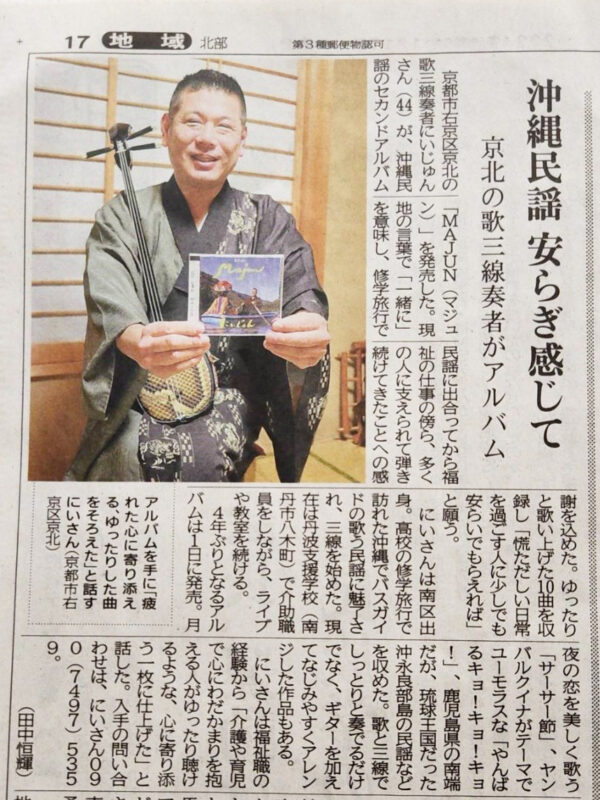 17 地域 北部 第3種郵便物認可
沖縄民謡 安らぎ感じて
京北の歌三線奏者がアルバム
京都市右京区京北の
歌三線奏者にいじゅん
さん（44）が、沖縄民
謡のセカンドアルバム
「MAJUN（マジュ
ン）」を発売した。現
地の言葉で「一緒に」
を意味し、修学旅行で
民謡に出合ってから福
祉の仕事の傍ら、多く
の人に支えられて弾き
続けてきたことへの感
謝を込めた。ゆったり
と歌い上げた10曲を収
録し「慌ただしい日常
を過ごす人に少しでも
安らいでもらえれば」
と願う。
にいさんは南区出
身。高校の修学旅行で
訪れた沖縄でバスガイ
ドの歌う民謡に魅了さ
れ、三線を始めた。現
在は丹波支援学校（南
丹市八木町）で介助職
員をしながら、ライブ
や教室を続ける。
4年ぶりとなるアル
バムは1日に発売。月
夜の恋を美しく歌う
「サーサー節」、ヤン
バルクイナがテーマで
ユーモラスな「やんば
るキョ！キョ！キョ
！」、鹿児島県の南端
だが、琉球王国だった
沖永良部島の民謡など
を収めた。歌と三線で
しっとりと奏でるだけ
でなく、ギターを加え
てなじみやすくアレン
ジした作品もある。
にいさんは福祉職の
経験から「介護や育児
で心にわだかまりを抱
える人がゆったり聴け
るような、心に寄り添
う一枚に仕上げた」と
話した。入手の問い合
わせは、にいさん09
0（7497）535
9。
（田中恒輝）
Majun
にいじゅん
アルバムを手に「疲
れた心に寄り添え
る、ゆったりした曲
をそろえた」と話す
にいさん（京都市右
京区京北）